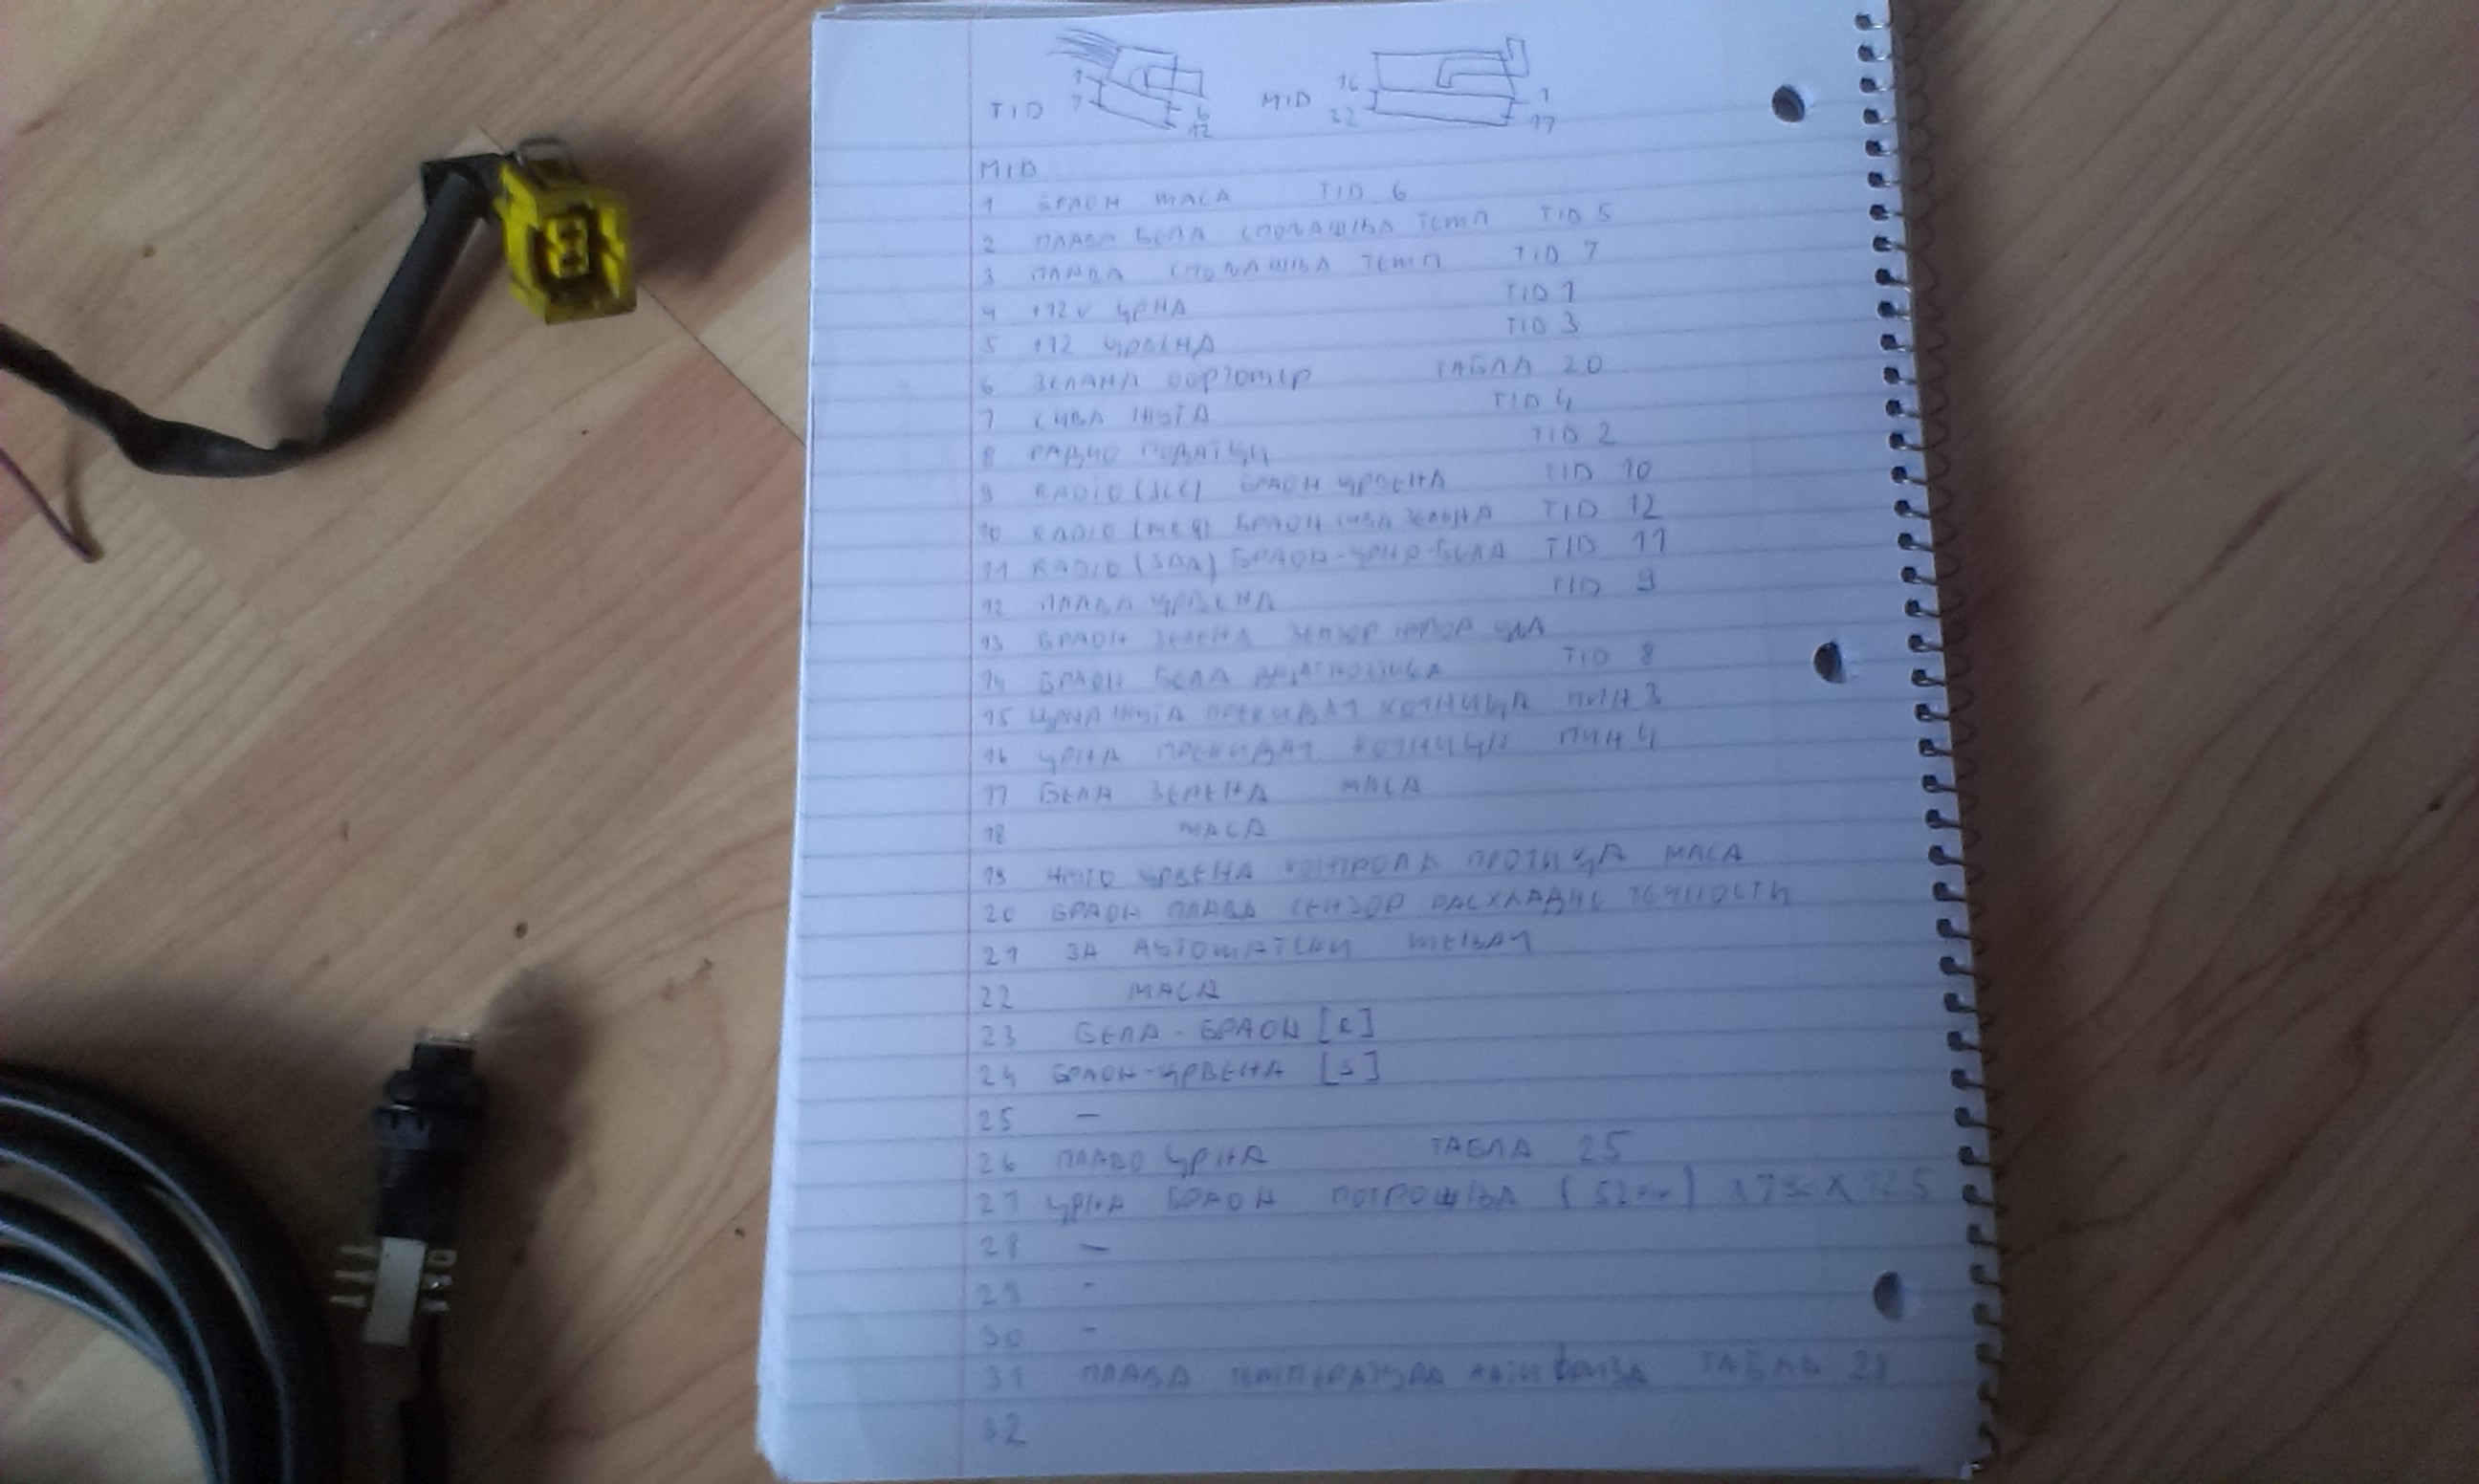 1 16 1
TID 7 6 MID 32 17
12
MID
1 БРАОН МАСА TID 6
2 ПЛАВА БЕЛА СПОЉАШЊА ТЕМП TID 5
3 ПЛАВА СПОЉАШЊА ТЕМП TID 7
4 +12V ЦРНА TID 1
5 +12 ЦРВЕНА TID 3
6 ЗЕЛАНА ТАБЛА 20
7 СИВА ЖУТА TID 4
8 РАДИО ПОДАТЦИ TID 2
9 RADIO (SCL) БРАОН ЦРВЕНА TID 10
10 RADIO БРАОН СИВА ЗЕЛЕНА TID 12
11 RADIO (SDA) БРАОН-ЦРНА-БЕЛА TID 11
12 ПЛАВА ЦРВЕНА TID 9
13 БРАОН ЗЕЛЕНА
14 БРАОН БЕЛА ДИЈАГНОСТИКА TID 8
15 ЦРНА ЖУТА ПРЕКИДАЧ КОЧНИЦА ПИН 3
16 ЦРНА ПРЕКИДАЧ КОЧНИЦА ПИН 4
17 БЕЛА ЗЕЛЕНА МАСА
18 МАСА
19 ЖУТО ЦРВЕНА КОНТРОЛА ПЛОЧИЦА МАСА
20 БРАОН ПЛАВА СЕНЗОР РАСХЛАДНЕ ТЕЧНОСТИ
21 ЗА АВТОМАТСКИ МЕЊАЧ
22 МАСА
23 БЕЛА-БРАОН [R]
24 БРАОН-ЦРВЕНА [S]
25 —
26 ПЛАВО ЦРНА ТАБЛА 25
27 ЦРНА БРАОН ПОТРОШЊА
28 —
29 -
30 -
31 ПЛАВА ТЕМПЕРАТУРА ТАБЛА
32